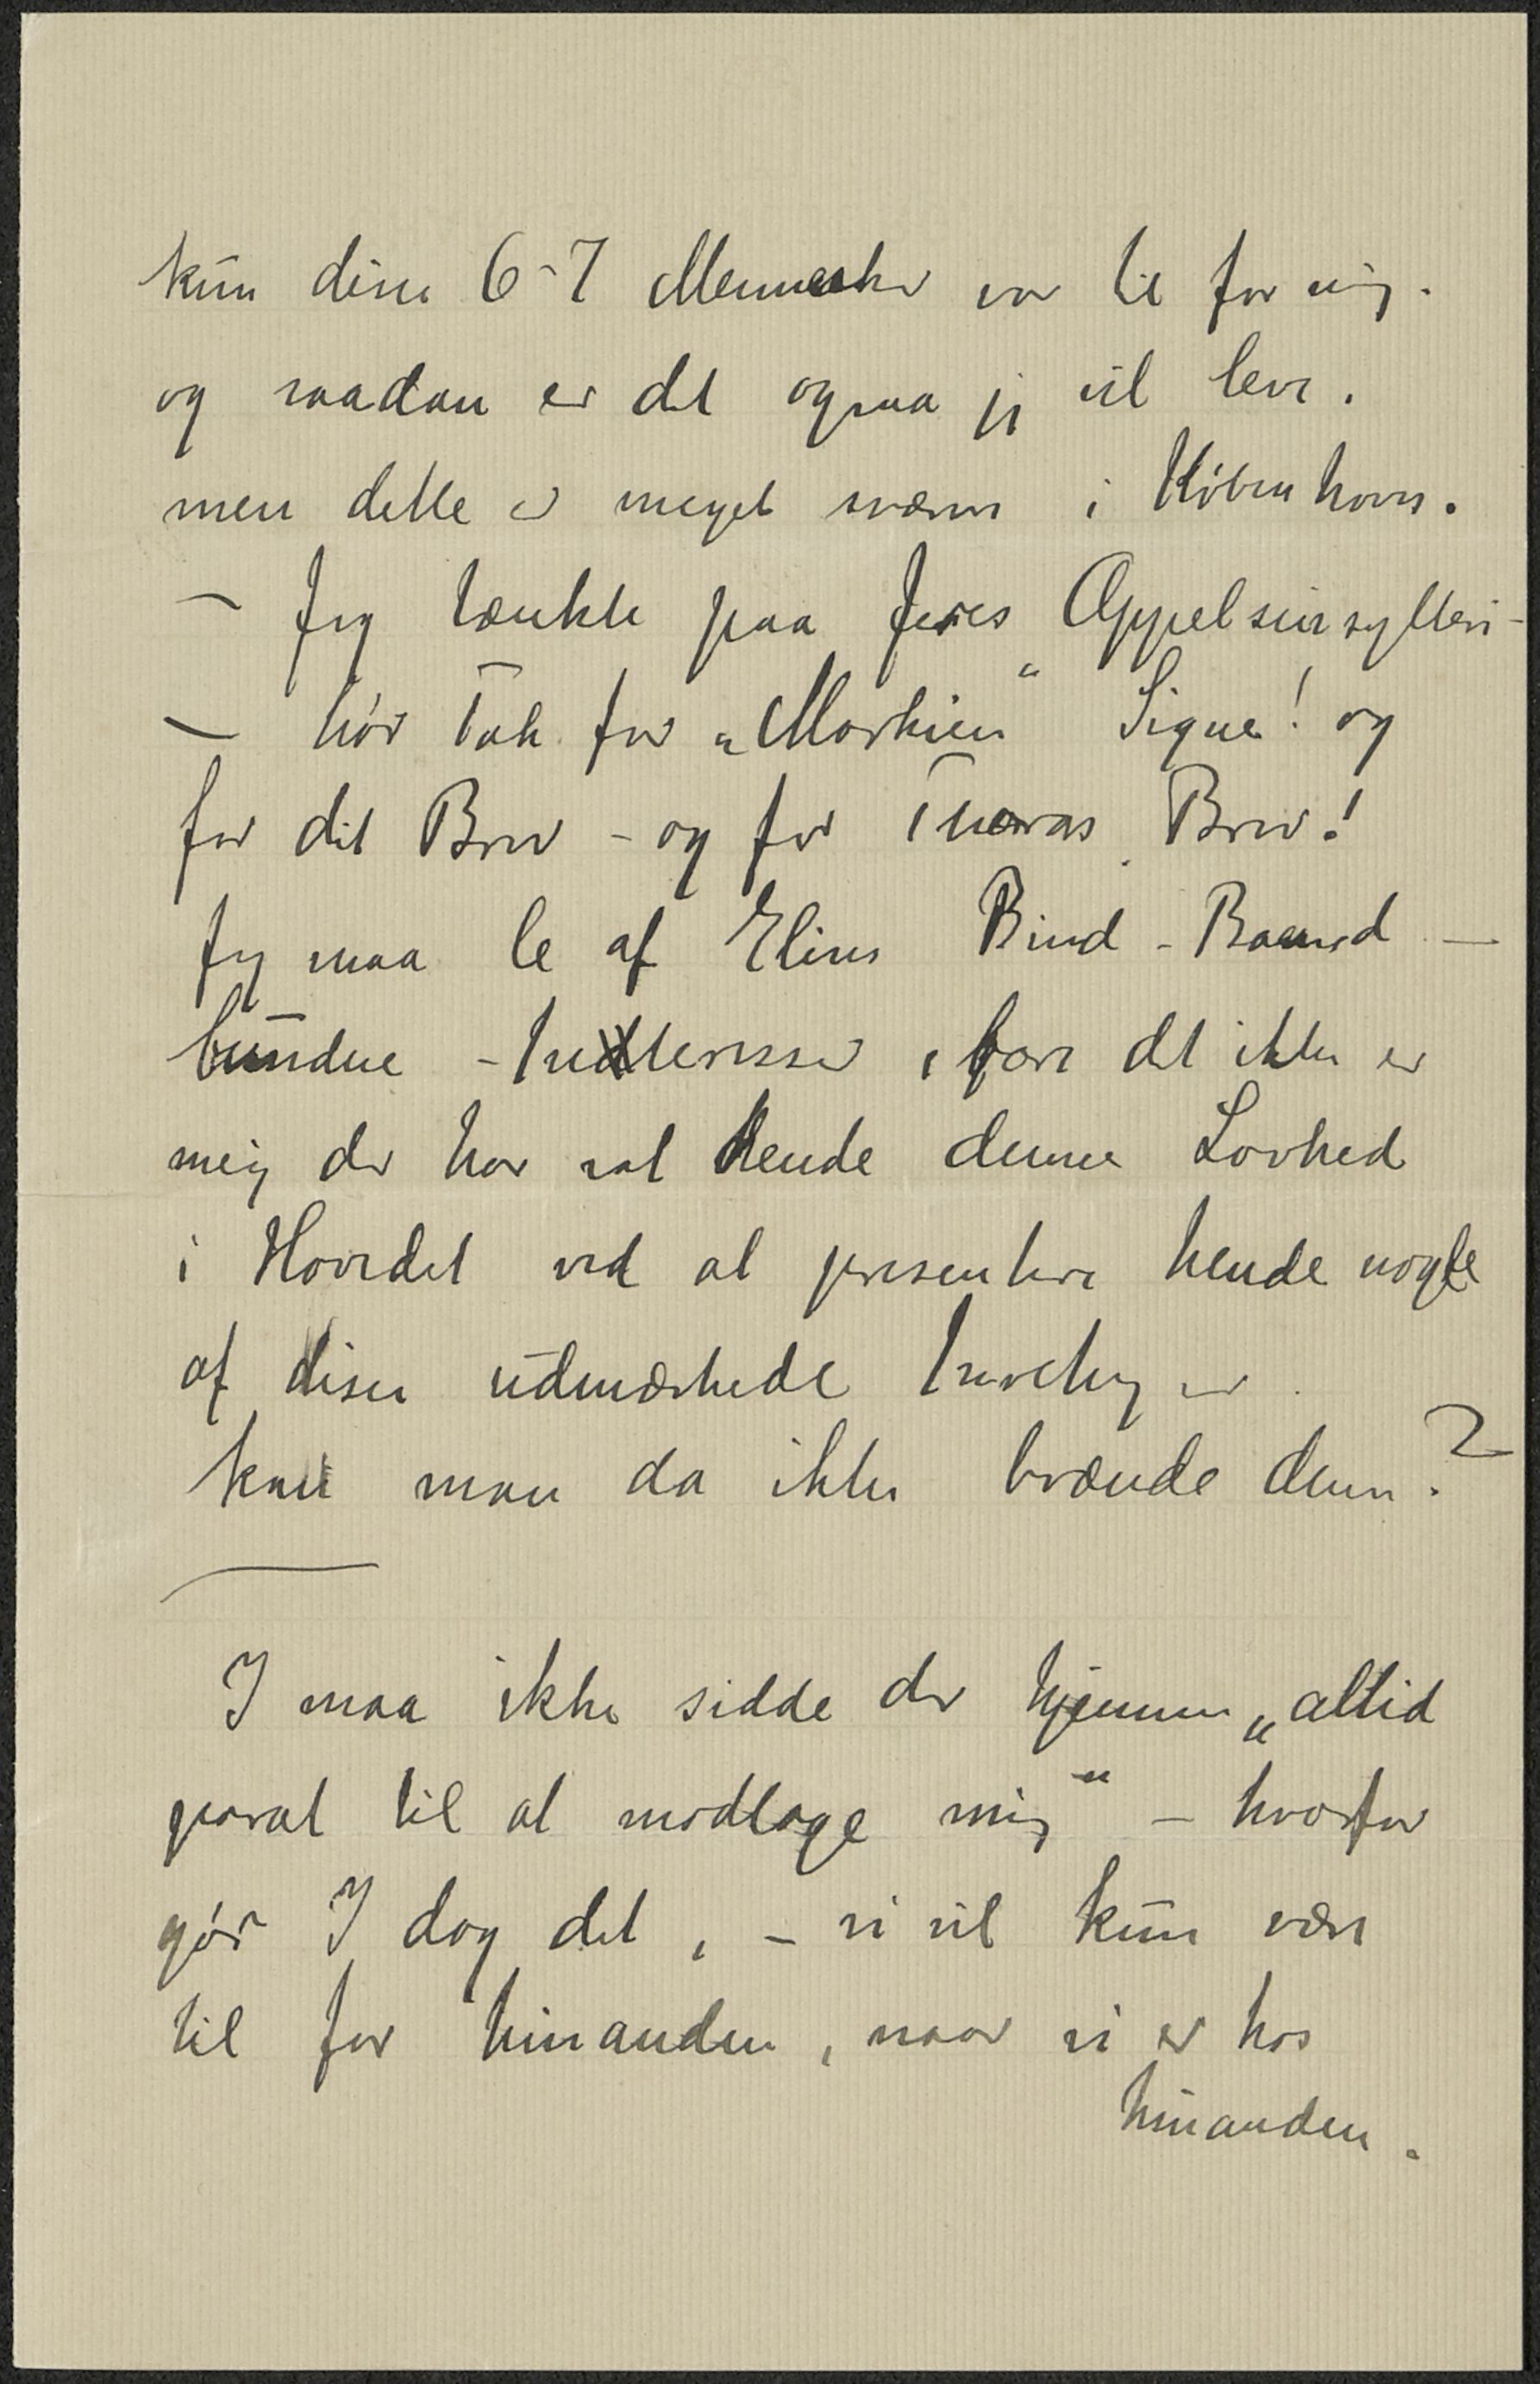 kun disse 6-7 Mennesker var til for mig.
og saadan er det ogsaa jeg vil leve.
men dette er meget svært i København.
– Jeg tænkte paa Jeres Appelsinsylteri –
– hør Tak for „Maskinen“ Signe! og
for dit Brev – og for Thoras Brev!
Jeg maa le af Elines Bind-Baand –
bundne – Interesser, bare det ikke er
mig der har sat hende denne Lovhed
i Hovedet ved at presentere hende nogle
af disse udmærkede
kan man da ikke brænde dem?
I maa ikke sidde der hjemme „altid
parat til at modtage mig“ – hvorfor
gør I dog det, – vi vil kun være
til for hinanden, naar vi er hos
hinanden.